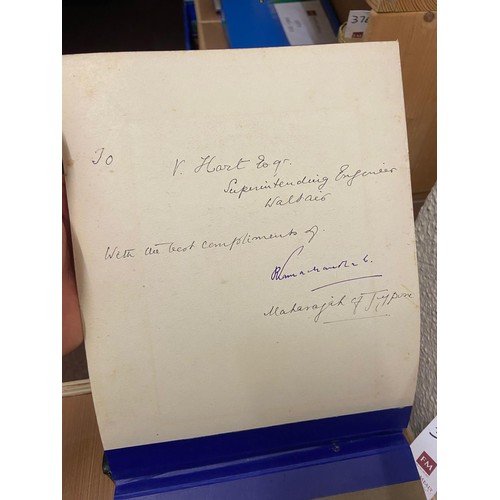 To
V. Hart Esqr.
Superintending Engineer
Waltair
With the best compliments of.
Maharajah of Jeypore
37
FM